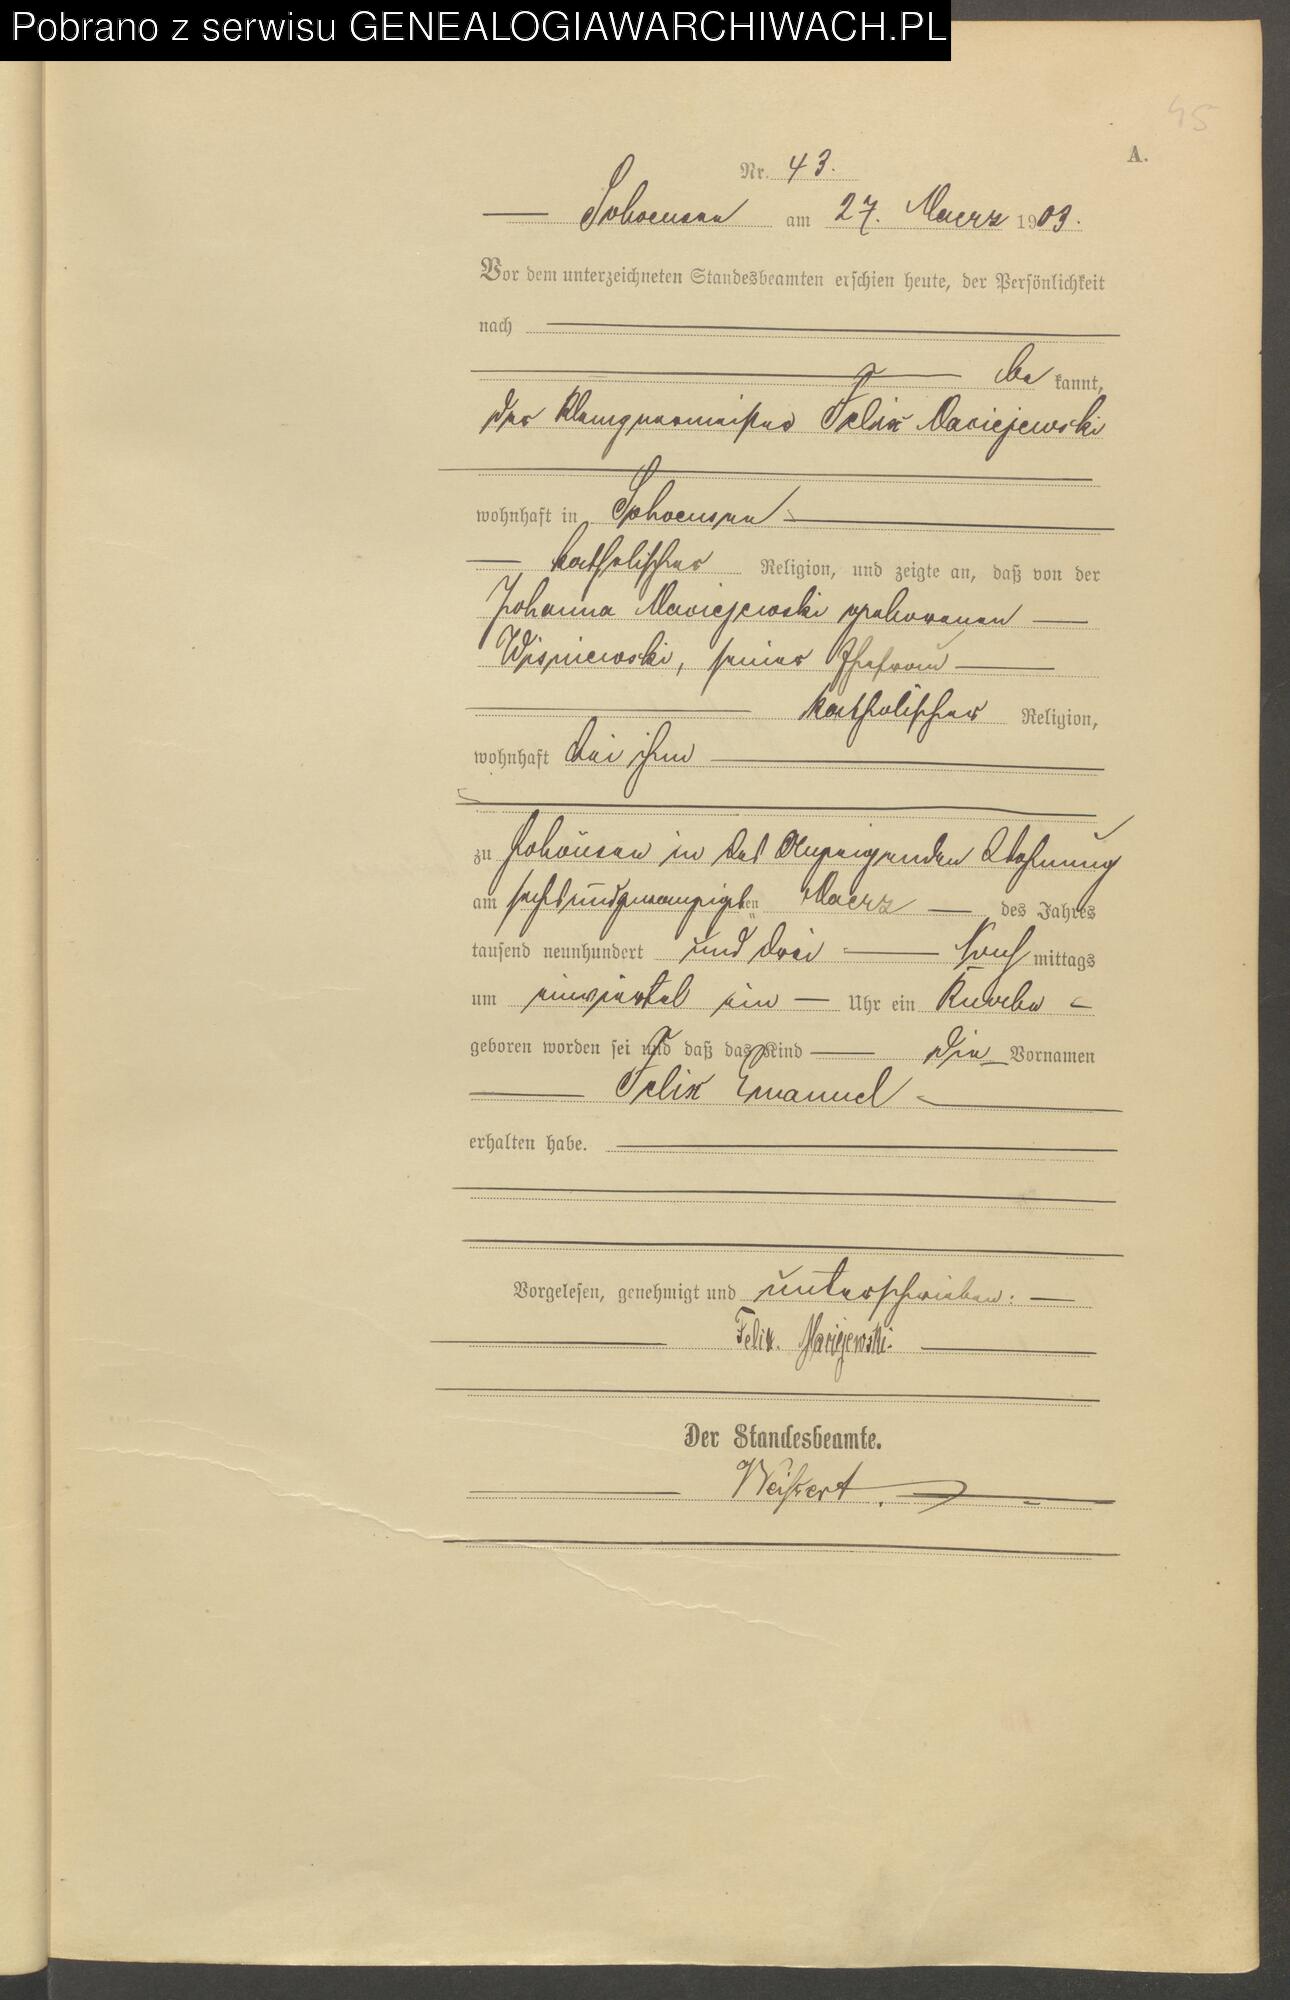 Pobrano z serwisu GENEALOGIAWARCHIWACH.PL
45
A.
Nr. 43.
Schoensee am 27. Maerz 1903.
Vor dem unterzeichneten Standesbeamten erschien heute, der Persönlichkeit
nach
be kannt,
der Klempnermeister Felix Maciejewski
wohnhaft in Schoensee
katholischer Religion, und zeigte an, daß von der
Johanna Maciejewski geborenen
Wisniewski, seiner Ehefrau
katholischer Religion,
wohnhaft bei ihm
zu Schönsee in des Anzeigenden Wohnung
am sechsundzwanzigsten Maerz des Jahres
tausend neunhundert und drei Nach mittags
um einviertel ein Uhr ein Knabe
geboren worden sei und daß das Kind die Vornamen
Felix Emanuel
erhalten habe.
Vorgelesen, genehmigt und unterschrieben.
Felix. Maciejewski.
Der Standesbeamte.